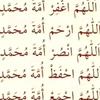 اللَّهُمَّ اغْفِرْ أُمَّةَ مُحَمَّدٍ
اللَّهُمَّ ارْحَمْ أُمَّةَ مُحَمَّدٍ
اللَّهُمَّ انْصُرْ أُمَّةَ مُحَمَّدٍ
اللَّهُمَّ احْفَظْ أُمَّةَ مُحَمَّدٍ